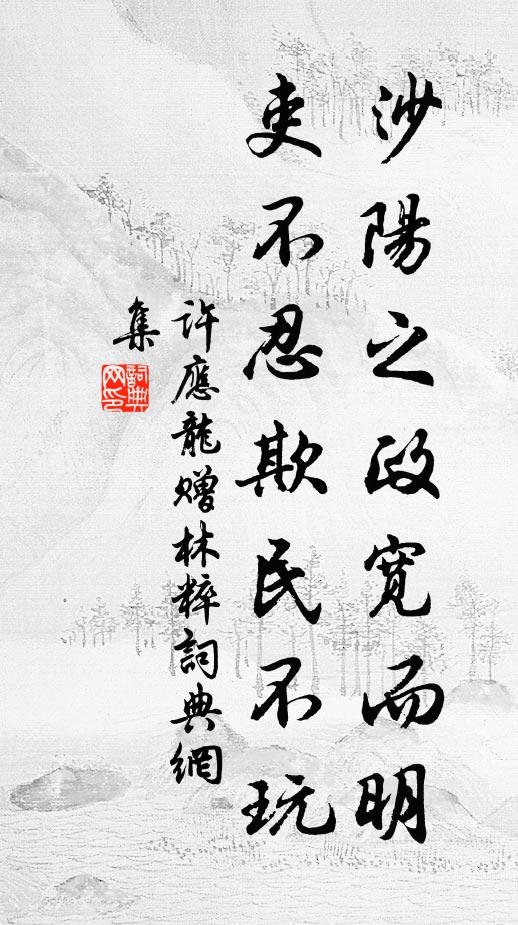 沙陽之政寬而明
吏不忍欺民不玩
許應龍贈林粹詞典網
集
詞典
網印